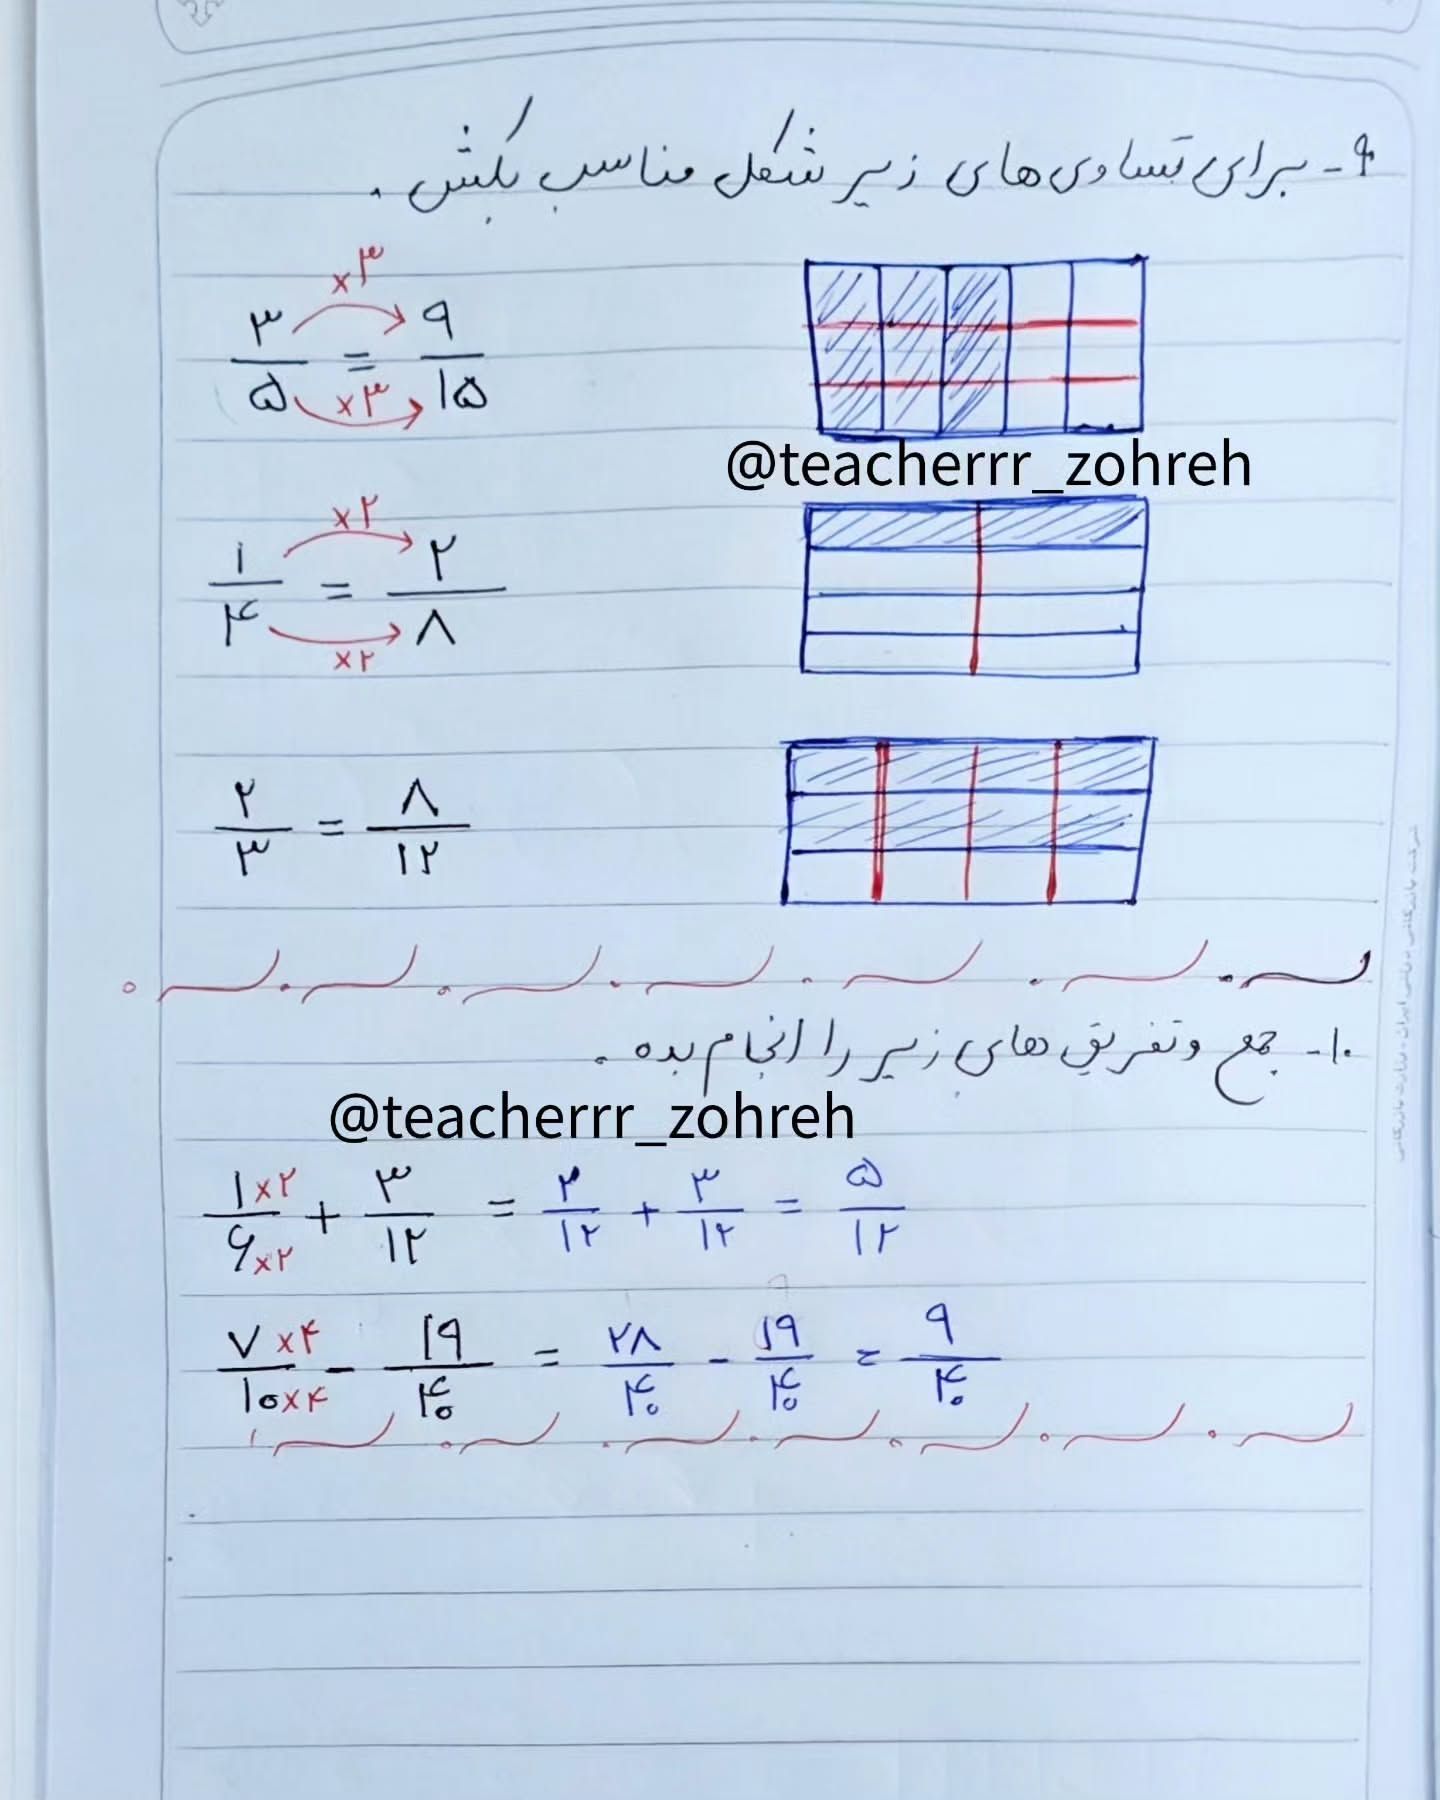 ۹- برای تساوی های زیر شکل مناسب بکش .
×۳
۳/۵ = ۹/۱۵
×۳
@teacherrr_zohreh
×۲
۱/۴ = ۲/۸
×۲
۲/۳ = ۸/۱۲
۱۰- جمع و تفریق های زیر را انجام بده .
@teacherrr_zohreh
۱×۲/۶×۲ + ۳/۱۲ = ۲/۱۲ + ۳/۱۲ = ۵/۱۲
۷×۴/۱۰×۴ - ۱۹/۴۰ = ۲۸/۴۰ - ۱۹/۴۰ = ۹/۴۰